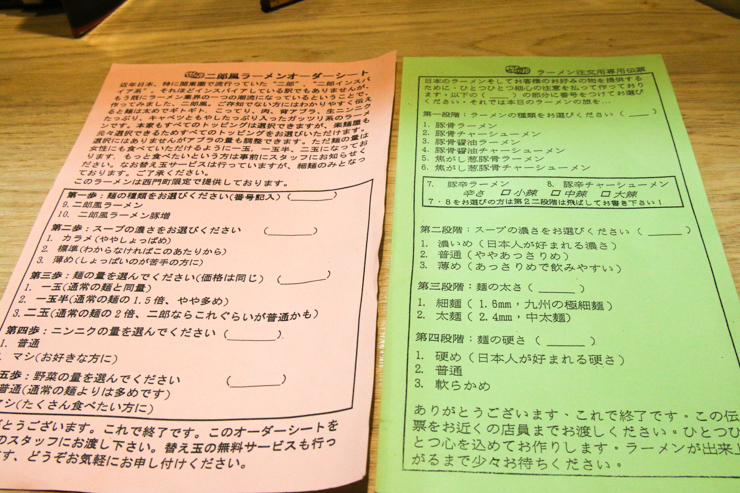 二郎風ラーメンオーダーシート
近年日本、特に関東圏で流行っていた"二郎"、"二郎インスパ
イア系"、それほどインスパイアしている訳でもありませんが、
もう既にラーメン業界の一つの潮流になっているということで、
作ってみました、二郎風。ご存知でない方にはわかりやすく伝え
ると麺は太めでギトギト、こってり、肉、背アブラ、生ニンニク
たっぷり、キャベツともやしたっぷり入ったガッツリ系のラーメ
ンです。本家もすべてのトッピングは選択できますが、楽麺屋も
元々選択できるためすべてのトッピングをお選びいただけます。
選択にはありませんがアブラの量も調整できます。ただ麺の量は
女性にも食べていただけるように一玉、一玉半、二玉になってお
ります。もっと食べたいという方は事前にスタッフにお知らせく
ださい。なお替え玉サービスは行っていますが、細麺のみとなっ
ております。ご了承ください。
このラーメンは西門町限定で提供しております。
第一歩：麺の種類をお選びください(番号記入) (　　　)
9. 二郎風ラーメン
10. 二郎風ラーメン豚増
第二歩：スープの濃さをお選びください (　　　)
1. カラメ(ややしょっぱめ)
2. 標準(わからなければこのあたりから)
3. 薄め(しょっぱいのが苦手の方に)
第三歩：麺の量を選んでください(価格は同じ) (　　　)
1. 一玉(通常の麺と同量)
2. 一玉半(通常の麺の1.5倍、やや多め)
3. 二玉(通常の麺の2倍、二郎ならこれぐらいが普通かも)
第四歩：ニンニクの量を選んでください (　　　)
1. 普通
マシ(お好きな方に)
五歩：野菜の量を選んでください (　　　)
普通(通常の麺よりは多めです)
マシ(たくさん食べたい方に)
がとうございます。これで終了です。このオーダーシートを
のスタッフにお渡し下さい。替え玉の無料サービスも行っ
す、どうぞお気軽にお申し付けください。
ラーメン注文用専用伝票
日本のラーメンそしてお客様のお好みの物を提供する
ために・ひとつひとつ細心の注意を払って作っており
ます・以下の(　　　)の部分に番号をつけてお選び
ください・それでは本日のラーメンの旅を…
第一段階：ラーメンの種類をお選びください (　　　)
1. 豚骨ラーメン
2. 豚骨チャーシューメン
3. 豚骨醤油ラーメン
4. 豚骨醤油チャーシューメン
5. 焦がし葱豚骨ラーメン
6. 焦がし葱豚骨チャーシューメン
7. 豚辛ラーメン　8. 豚辛チャーシューメン
辛さ　□小辣　□中辣　□大辣
7・8をお選びの方は第2二段階は飛ばしてお書き下さい！
第二段階：スープの濃さをお選びください (　　　)
1. 濃いめ(日本人が好まれる濃さ)
2. 普通(ややあっさりめ)
3. 薄め(あっさりめで飲みやすい)
第三段階：麺の太さ (　　　)
1. 細麺(1.6mm，九州の極細麺)
2. 太麺(2.4mm，中太麺)
第四段階：麺の硬さ (　　　)
1. 硬め(日本人が好まれる硬さ)
2. 普通
3. 軟らかめ
ありがとうございます・これで終了です・この伝
票をお近くの店員までお渡しください・ひとつひ
とつ心を込めてお作りします・ラーメンが出来上
がるまで少々お待ちください。